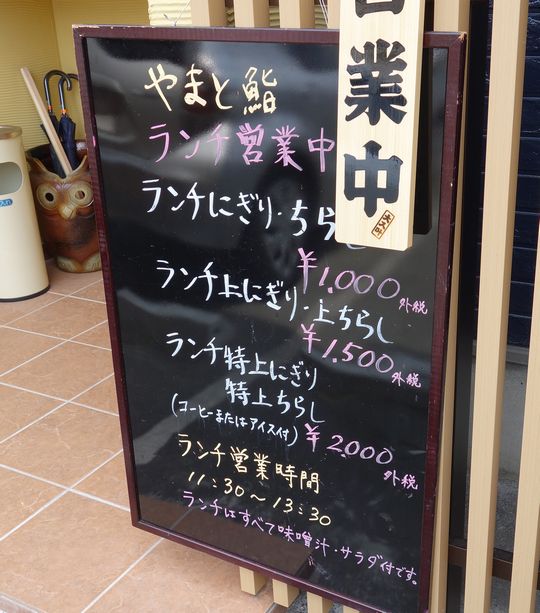 営業中
やまと鮨
ランチ営業中
ランチにぎり・ちらし
¥1.000
外税
ランチ上にぎり・上ちらし
¥1.500
外税
ランチ特上にぎり
特上ちらし
(コーヒーまたはアイス付) ¥2000
外税
ランチ営業時間
11:30〜13:30
ランチはすべて味噌汁・サラダ付です。